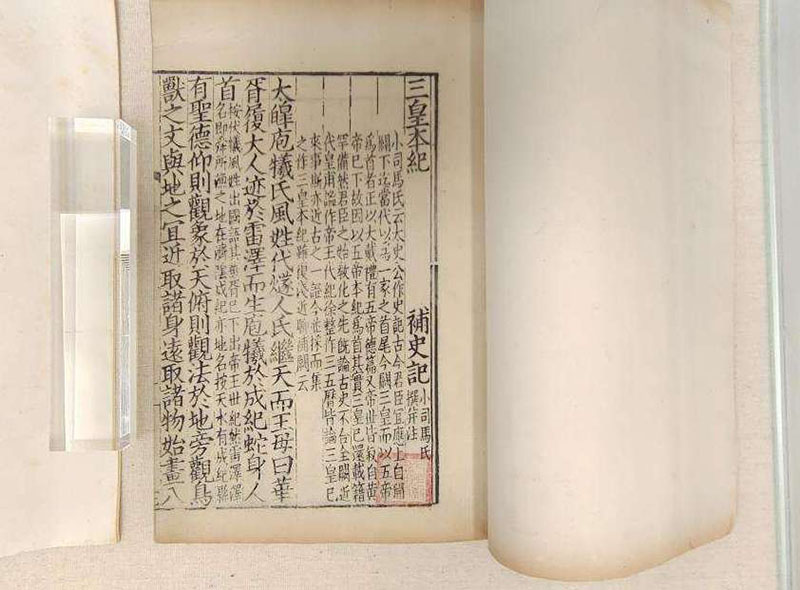 三皇本紀 補史記 小司馬氏
撰并注
小司馬氏云太史公作史記古今君臣宜應上自開
闢下迄當代以為一家之首尾今闕三皇而以五帝
為首者正以大戴禮有五帝德篇又帝世皆叙自黄
帝已下故因以五帝本紀為首其實三皇已還載籍
罕備然君臣之始敎化之先旣論古史不合全闕近
代皇甫謐作帝王代紀徐整作三五曆皆論三皇已
來事斯亦近古之一證今並採而集
之作三皇本紀雖復淺近聊補闕云
大皥庖犧氏風姓代燧人氏繼天而王母曰華
胥履大人迹於雷澤而生庖犧於成紀蛇身人
首 按伏犧風姓出國語其華胥已下出帝王世紀然雷澤澤
名即舜所漁之地在濟陰成紀亦地名按天水有成紀縣
有聖德仰則觀象於天俯則觀法於地旁觀鳥
獸之文與地之宜近取諸身遠取諸物始畫八